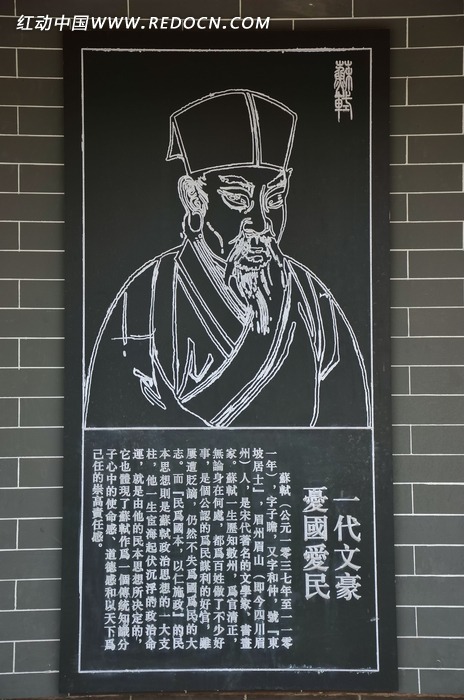 红动中国 www.REDOCN.com
蘇軾
一代文豪
憂國愛民
蘇軾（公元一零三七年至一一零
一年），字子瞻，又字和仲，號『東
坡居士』，眉州眉山（即今四川眉
州）人，是宋代著名的文學家、書畫
家。蘇軾一生歷知數州，爲官清正，
無論身在何處，都爲百姓做了不少好
事，是個公認的爲民謀利的好官，雖
屢遭貶謫，仍然不失爲國爲民的大
志。而『民爲國本，以仁施政』的民
本思想則是蘇軾政治思想的一大支
柱，他一生宦海起伏沉浮的政治命
運，就是由他的民本思想所决定的，
它也體現了蘇軾作爲一個傳統知識分
子心中的使命感、道德感和以天下爲
己任的崇高責任感。